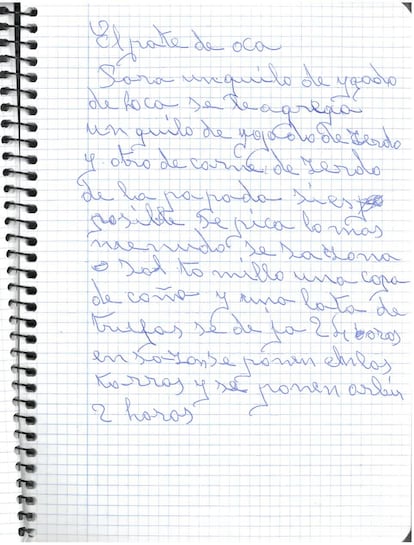 El pate de oca
Para un quilo de ygado
de hoca se le agrega
un quilo de ygado de zerdo
y otro de carne de zerdo
de la papada si es
posible se pica lo mas
menudo se sazona
sal tomillo una copa
de coña y una lata de
trufas se deja 24 oros
en sazon se ponen en los
tarros y se ponen arbir
2 horas